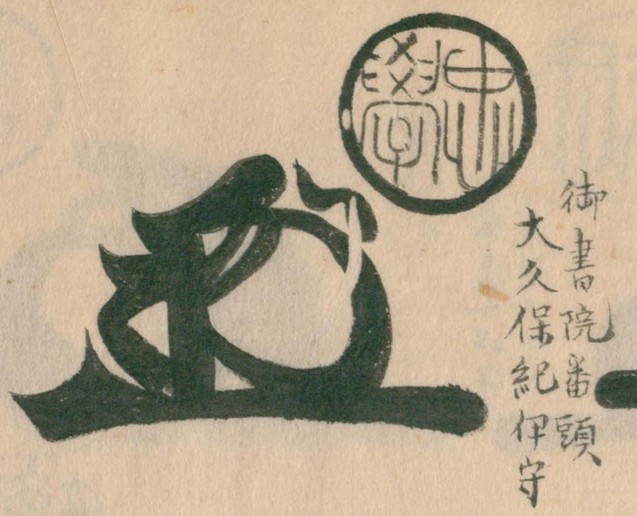 忠學
御書院番頭
大久保紀伊守